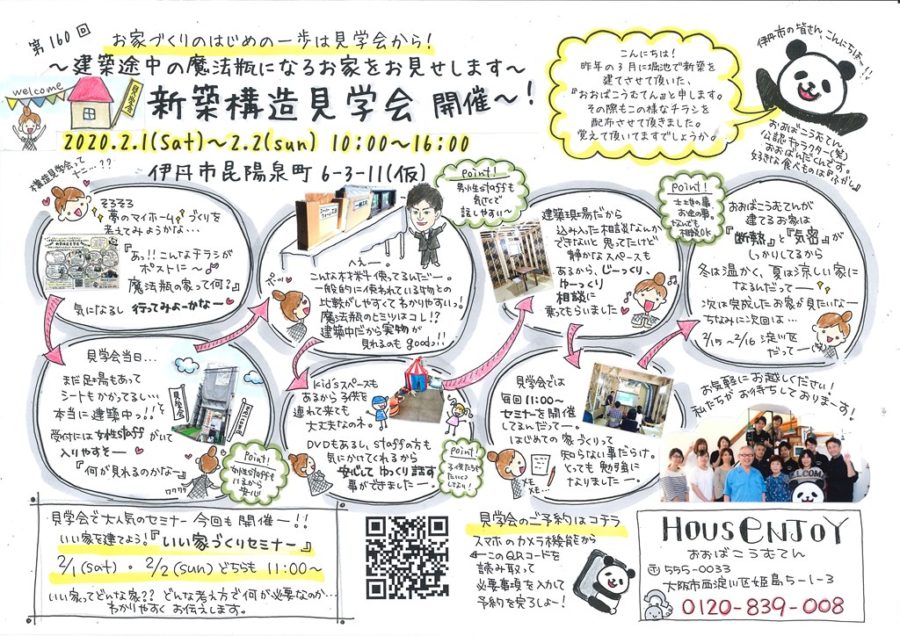 第160回
お家づくりのはじめの一歩は見学会から!
〜建築途中の魔法瓶になるお家をお見せします〜
welcome
見学会
新築構造見学会 開催〜!
2020.2.1(Sat)〜2.2(sun) 10:00〜16:00
伊丹市昆陽泉町 6-3-11(仮)
こんにちは!
昨年の3月に堀池で新築を
建てさせて頂いた、
『おおばこうむてん』と申します。
その際もこの様なチラシを
配布させて頂きました。
覚えて頂いてますでしょうか。
伊丹市の皆さん、こんにちは〜!!
おおばこうむてん
公認キャラクター(笑)
おおぱんだくんです。
好きな食べものは『ふがし』
構造見学会って
な…??
そろそろ
夢のマイホームづくりを
考えてみようかな…
『あっ!!こんなチラシが
ポストに〜
魔法瓶の家って何?』
気になるし 行ってみよーかなー
見学会当日…
まだ足場もあって
シートもかかってるし…
本当に建築中っ!!
受付には女性staffがいて
入りやすそー
『何が見れるのかなー』
ワクワク
見学会
Point!
女性staffも
いるから安心
男性staffも
気さくで
話しやすい〜
へぇー。
こんな材料使ってるんだー。
一般的に使われている物との
比較がしやすくてわかりやすいっ。
魔法瓶のヒミツはコレ!?
建築中だから実物が
見れるのもgood!!
Kid'sスペースも
あるから子供を
連れて来ても
大丈夫なのネ。
DVDもあるし、staffの方も
気にかけてくれるから
安心してゆっくり話す
事ができましたー
Point!
子供たちも
建築現場だから
込み入った相談なんか
できないと思ってたけど
静かなスペースも
あるから、じーっくり、
ゆーっくり
相談に
乗ってもらいました
Point!
お金の事、
なんでも
相談OK
見学会では
毎回11:00〜
セミナーを開催
してるんだってー。
はじめての家づくりって
知らない事だらけ。
とっても勉強に
なりましたー
メモ
メモ…
おおばこうむてんが
建てるお家は
『断熱』と『気密』が
しっかりしてるから
冬は温かく、夏は涼しい家に
なるんだってー
次は完成したお家が見たいなー
ちなみに次回は…
2/15〜2/16 淀川区
だってー
お気軽にお越しください!
私たちがお待ちしておりまーす!
WELCOME
見学会で大人気のセミナー 今回も開催ー!!
いい家を建てよう!『いい家づくりセミナー』
2/1(sat)・2/2(sun) どちらも 11:00〜
いい家ってどんな家?? どんな考え方で何が必要なのか…
わかりやすくお伝えします。
見学会のご予約はコチラ
スマホのカメラ機能から
←このQRコードを
読み取って
必要事項を入力して
予約を完了しよー!
HOUSENJOY
おおばこうむてん
〒555-0033
大阪市西淀川区姫島5-1-3
0120-839-008